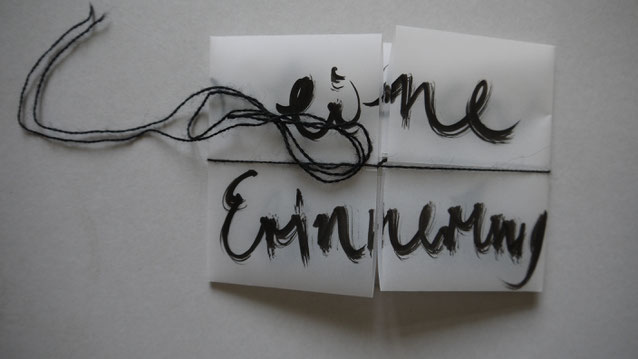 eine
Erinnerung